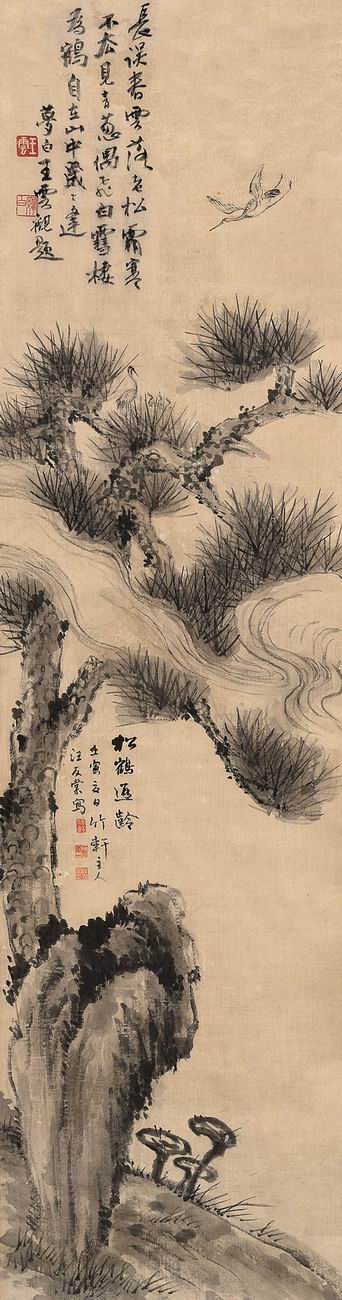 長誤春雲落松霜寒
不見青葱偶飛白棲
為鶴自在山中歲〻逢
夢白王雲觀題
王雲
松鶴遐齡
壬寅夏日竹軒主人
汪友棠寫